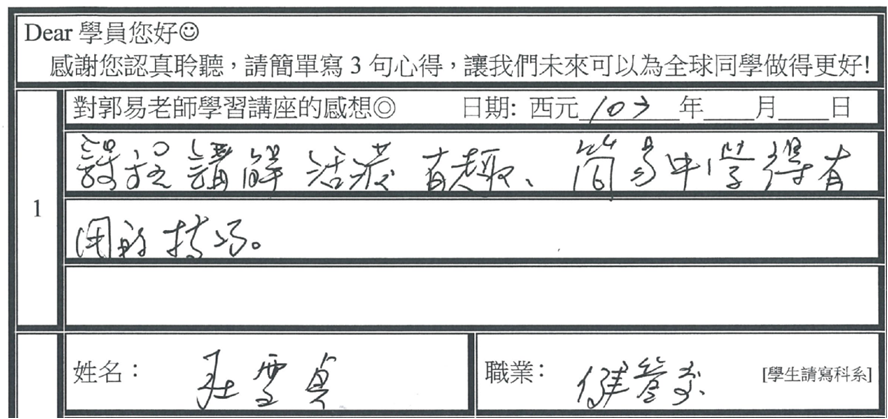 Dear 學員您好☺
感謝您認真聆聽,請簡單寫3句心得,讓我們未來可以為全球同學做得更好!
1
對郭易老師學習講座的感想◎ 日期: 西元103年 月 日
課程講解活潑有趣、簡易中學得有
用的技巧。
姓名: 莊雪貞 職業: [學生請寫科系]